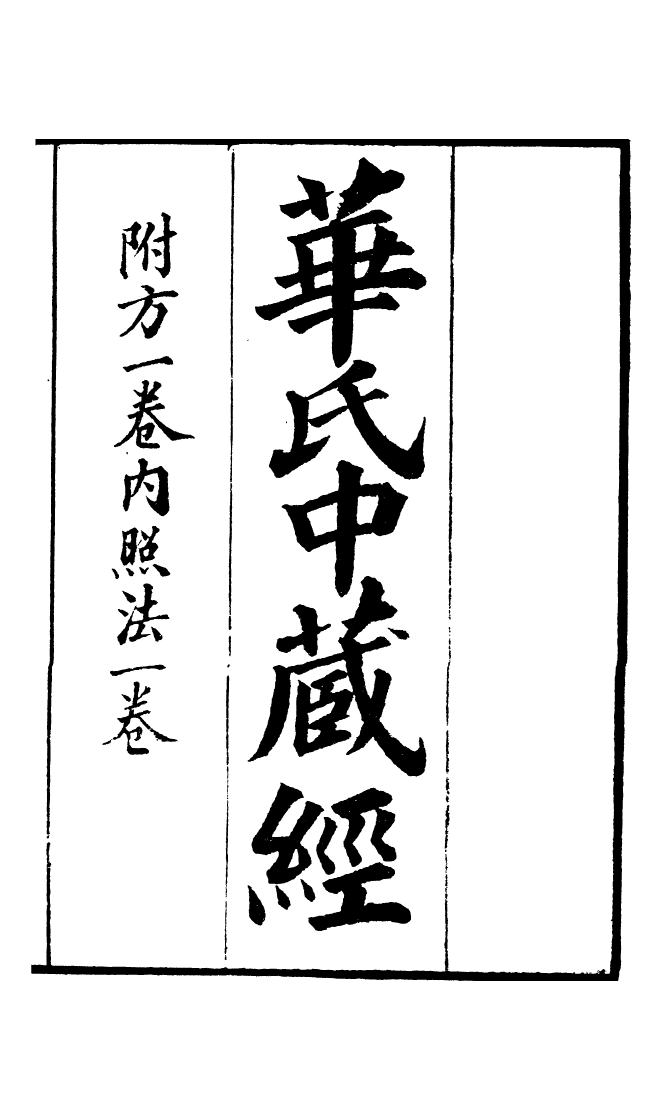 華氏中藏經
附方一卷內照法一卷